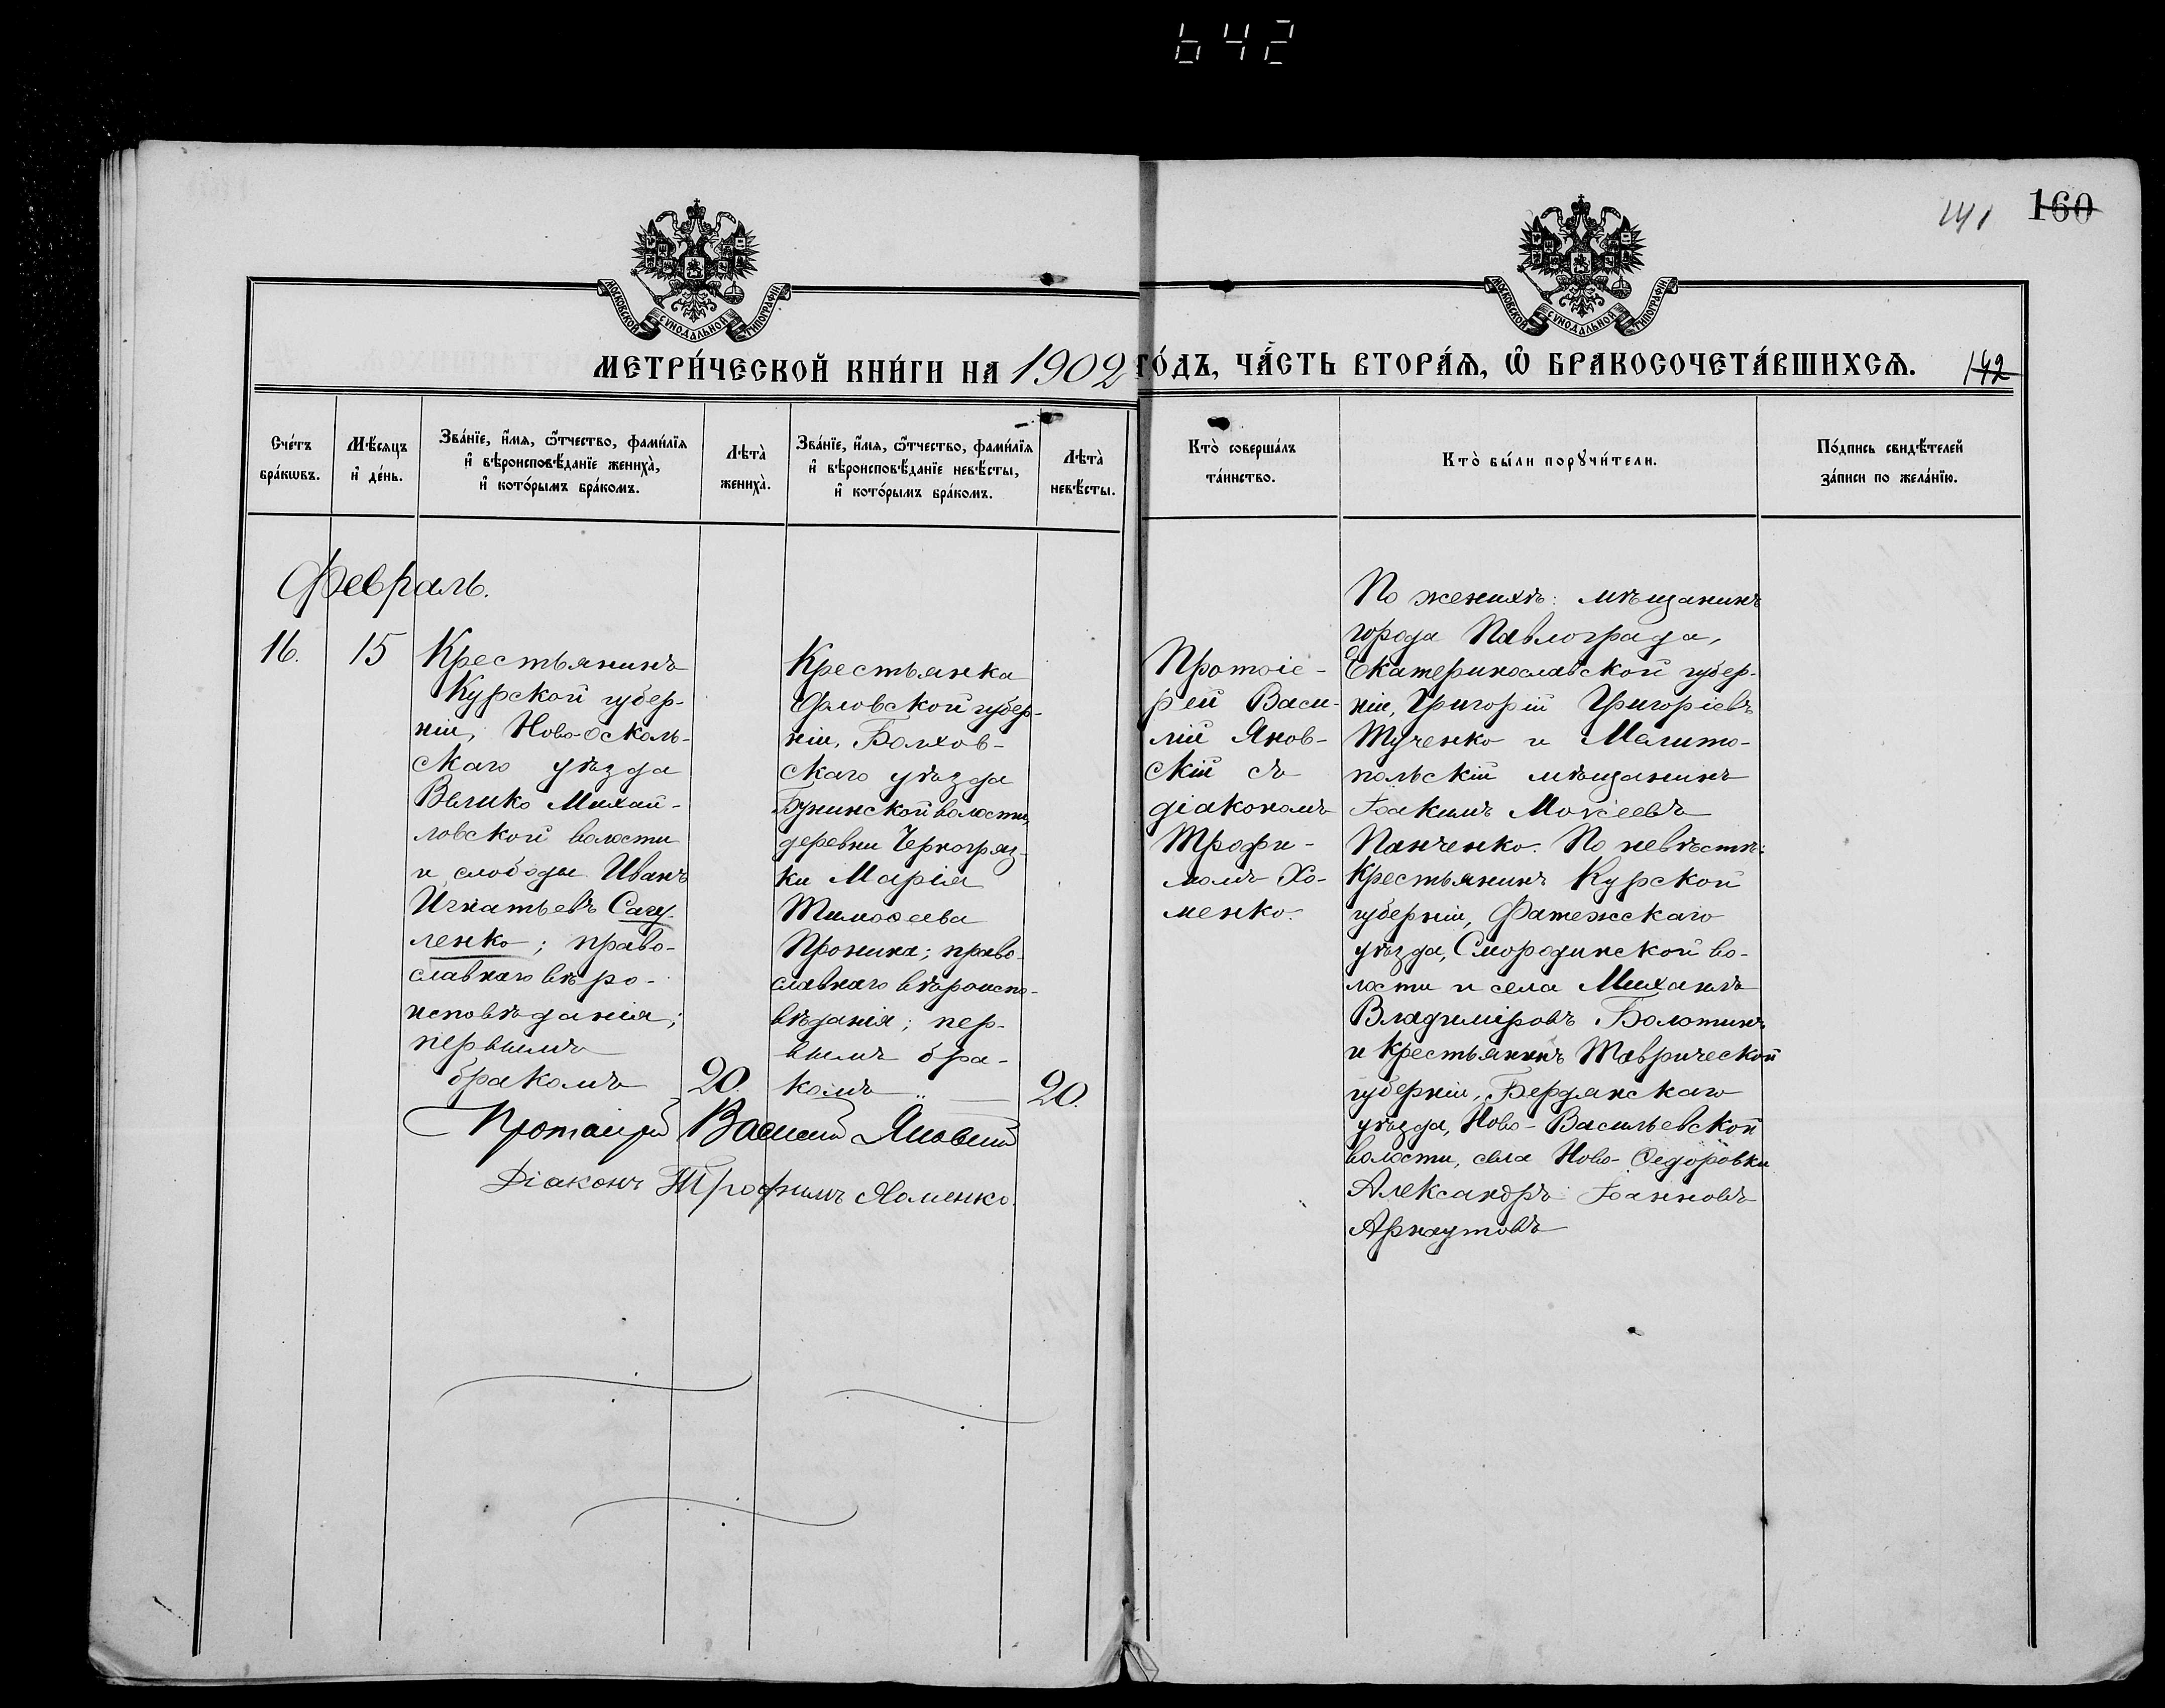 642
141 160
МОСКОВСКОЙ СѴНОДАЛЬНОЙ ТИПОГРАФІИ
МОСКОВСКОЙ СѴНОДАЛЬНОЙ ТИПОГРАФІИ
МЕТРИ́ЧЕСКОЙ КНИ́ГИ НА 1902 ГО́ДЪ, ЧА́СТЬ ВТОРА́Ѧ, Ѽ БРАКОСОЧЕТА́ВШИХСѦ. 142
Сче́тъ
бра́кѡвъ.
Мѣ́сяцъ
и҆ де́нь.
Зва́нїе, и҆́мя, ѻ҆́тчество, фами́лїя
и҆ вѣроисповѣ́данїе жениха̀,
и҆ кото́рымъ бра́комъ.
Лѣта̀
жениха̀.
Зва́нїе, и҆́мя, ѻ҆́тчество, фами́лїя
и҆ вѣроисповѣ́данїе невѣ́сты,
и҆ кото́рымъ бра́комъ.
Лѣта̀
невѣ́сты.
Кто̀ соверша́лъ
та́инство.
Кто̀ бы́ли порꙋчи́тели.
По́дпись свидѣ́телей
за́писи по жела́нїю.
Февраль.
16.
15
Крестьянинъ
Курской губер-
ніи, Ново-Осколь-
скаго уѣзда
Велико Михай-
ловской волости
и слободы Иванъ
Игнатьевъ Сагу-
ленко; право-
славнаго вѣро-
исповѣданія;
первымъ
бракомъ
20.
Крестьянка
Орловской губер-
ніи, Болхов-
скаго уѣзда
Бунинской волости,
деревни Черногряз-
ки Марія
Тимоѳеева
Пронина; право-
славнаго вѣроиспо-
вѣданія; пер-
вымъ бра-
комъ
20.
Протоіерей Василій Яновскій
Діаконъ Трофимъ Хоменко.
Протоіе-
рей Васи-
лій Янов-
скій съ
діакономъ
Трофи-
момъ Хо-
менко.
По женихѣ: мѣщанинъ
города Павлограда,
Екатеринославской губер-
ніи, Григорій Григоріевъ
Тученко и Мелито-
польскій мѣщанинъ
Іоакимъ Моѵсеевъ
Панченко. По невѣстѣ:
Крестьянинъ Курской
губерніи, Фатежскаго
уѣзда, Смородинской во-
лости и села Михаилъ
Владиміровъ Болотинъ
и крестьянинъ Таврической
губерніи, Бердянскаго
уѣзда, Ново-Васильевской
волости, села Ново-Ѳедоровки
Александръ Іоанновъ
Арнаутовъ